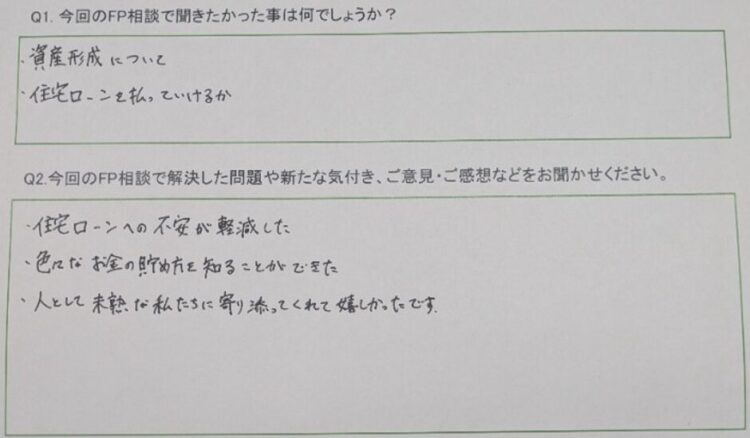 Q1. 今回のFP相談で聞きたかった事は何でしょうか？
・資産形成について
・住宅ローンを払っていけるか
Q2.今回のFP相談で解決した問題や新たな気付き、ご意見・ご感想などをお聞かせください。
・住宅ローンへの不安が軽減した
・色々なお金の貯め方を知ることができた
・人として未熟な私たちに寄り添ってくれて嬉しかったです。